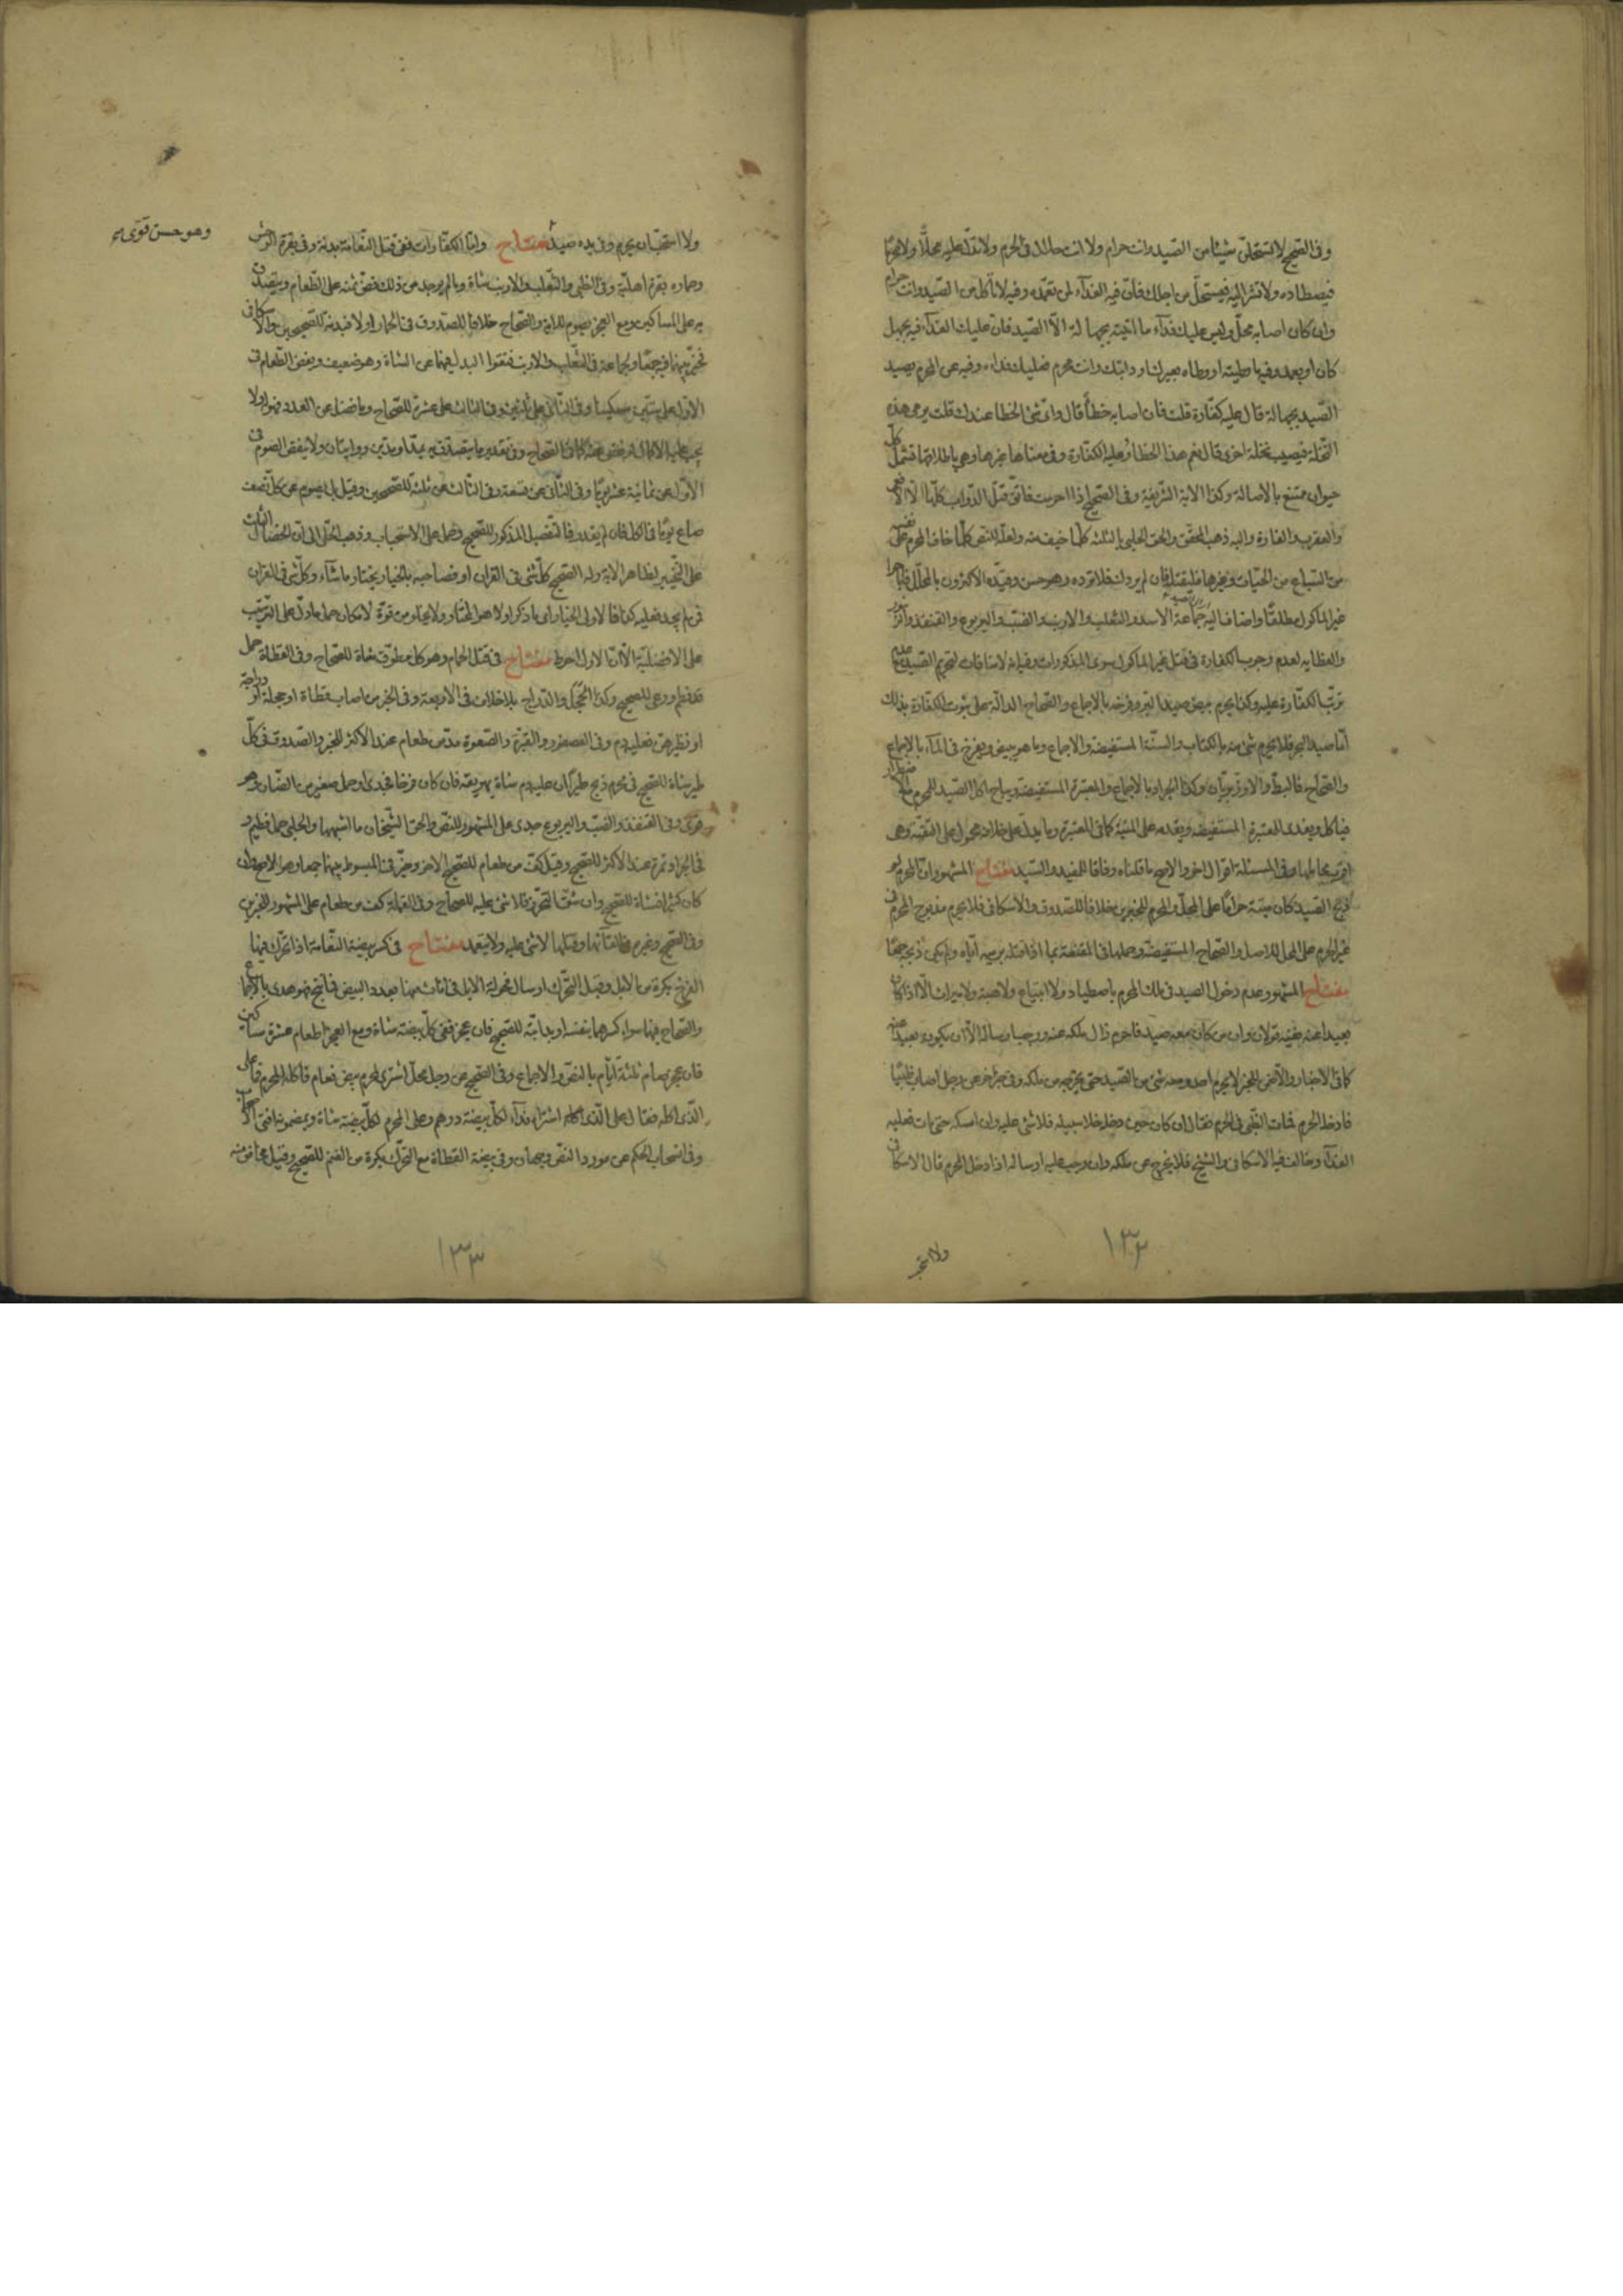 وفى الصحيح لا تستحلن شيئا من الصيد وانت حرام ولا انت حلال فى الحرم ولا تدلن عليه محلا ولا محرما
فيصطاده ولا تشر اليه فيستحل من اجلك فان فيه الفداء لمن تعمده وفيه لا تاكل من الصيد وانت حرام
وان كان اصابه محل وليس عليك فداء ما اتيته بجهالة الا الصيد فان عليك الفداء فيه بجهل
كان او بعمد وفيه ما وطيته او وطاه بعيرك او دابتك وانت محرم فعليك فداءه وفيه عن المحرم يصيد
الصيد بجهالة قال عليه كفارة قلت فان اصابه خطأ قال واى شئ الخطا عندك قلت يرمى هذه
النخلة فيصيب نخلة اخرى قال نعم هذا الخطا وعليه الكفارة وفى معناها غيرها وهى باطلاقها تشمل كل
حيوان ممتنع بالاصالة وكذا الاية الشريفة وفى الصحيح اذا احرمت فاتق قتل الدواب كلها الا الافعى
والعقرب والفارة واليه ذهب المحقق والحق الحلبى بالثلثة كلما خيف منه ولعله للنص كلما خاف المحرم على نفسه
من السباع من الحيات وغيرها فليقتله فان لم يردك فلا ترده وهو حسن وقيده الاكثرون بالمحلل
غير الماكول مطلقا واضاف اليه جماعة الاسد والثعلب والارنب والضب واليربوع والقنفذ
والعظاية لعدم وجوب الكفارة فى قتل غير الماكول سوى المذكورات وفيه انه لا منافات لتحريم الصيد مع عدم
ترتب الكفارة عليه وكذا يحرم بيض صيد البر وفرخه بالاجماع والصحاح الدالة على ثبوت الكفارة بذلك
اما صيد البحر فلا يحرم شئ منه بالكتاب والسنة المستفيضة والاجماع وما هو يبيض ويفرخ فى الماء بالاجماع
والصحاح فالبط والاوز بريان وكذا الجراد بالاجماع والمعتبرة المستفيضة ويباح اكل الصيد للمحرم مع الاضطرار
فياكل ويفدى للمعتبرة المستفيضة ويقدمه على الميتة كما فى المعتبرة وما يدل على خلافه محمول على التقية وهى
اقرب محاملها وفى المسئلة اقوال اخر والاصح ما قلناه وفاقا للمفيد والسيد مفتاح المشهور ان المحرم لو
ذبح الصيد كان ميتة حراما على المحل والمحرم للخبرين خلافا للصدوق والاسكافى فلا يحرم مذبوح المحرم فى
غير الحرم على المحل للاصل والصحاح المستفيضة وحملها فى المقنعة بما اذا قتله برميه اياه ولم يكن ذبحه جمعا
مفتاح المشهور عدم دخول الصيد فى ملك المحرم باصطياد ولا ابتياع ولا هبة ولا ميراث الا اذا كان
بعيدا عنه ففيه قولان وان من كان معه صيد فاحرم زال ملكه عنه ووجب ارساله الا ان يكون بعيدا عنه
كما فى الاخبار والاصل للخبر لا يحرم احد ومعه شئ من الصيد حتى يخرجه من ملكه وفى خبر اخر عن رجل اصاب ظبيا
فادخله الحرم فمات الظبى فى الحرم فقال ان كان حين دخله خلا سبيله فلا شئ عليه وان امسكه حتى مات فعليه
الفداء وخالف فيه الاسكافى والشيخ فلا يخرج عن ملكه وان وجب عليه ارساله اذا دخل الحرم قال الاسكافى
١٣٢
ولا استحب ان يحرم وفى يده صيد مفتاح واما الكفارات ففى قتل النعامة بدنة وفى بقرة الوحش
وهو حسن قوى
وحماره بقرة اهلية وفى الظبى والثعلب والارنب شاة ومالم يوجد من ذلك فض ثمنه على الطعام ويتصدق
به على المساكين ومع العجز يصوم للاية والصحاح خلافا للصدوق فى الحمار اولا فبدنة للصحيحين والاسكافى
فخير بينهما فيه جمعا ولجماعة فى الثعلب والارنب فنفوا البدل فيهما عن الشاة وهو ضعيف ويفض الطعام فى
الاول على ستين مسكينا وفى الثانى على ثلثين وفى الثالث على عشرة للصحاح وما فضل عن العدد فهو له ولا
يجب عليه الاكمال لو نقص عنه كما فى الصحاح وفى تقدير ما يتصدق به بمد او مدين روايتان ولا ينقص الصوم فى
الاول عن ثمانية عشر يوما وفى الثانى عن تسعة وفى الثالث عن ثلثة للصحيحين وقيل بل يصوم عن كل نصف
صاع يوما فى الكل فان لم يقدر فالتفصيل المذكور للصحيح وحمل على الاستحباب وذهب الحلى الى ان الخصال الثلث
على التخيير لظاهر الاية وله الصحيح كل شئ فى القران او فصاحبه بالخيار يختار ما شاء وكل شئ فى القران
فمن لم يجد فعليه كذا فالاولى الخيار اى ما ذكر اولا هو المختار ولا يخلو من قوة لامكان حمل ما دل على الترتيب
على الافضلية الا ان الاول احوط مفتاح فى قتل الحمام وهو كل مطوق شاة للصحاح وفى القطاة حمل
قد فطم ورعى للصحيح وكذا الحجل والدراج بلا خلاف فى الاربعة وفى الخبر من اصاب قطاة او حجلة او دراجة
او نظيرهن فعليه دم وفى العصفور والقبرة والصعوة مد من طعام عند الاكثر للخبر والصدوق فى كل
طير شاة للصحيح فى محرم ذبح طيرا ان عليه دم شاة يهريقه فان كان فرخا فجدى او حمل صغير من الضان وهو
قوى وفى القنفذ والضب واليربوع جدى على المشهور للنص والحق الشيخان ما اشبهها والحلبى حمل فطيم و
فى الجراد تمرة عند الاكثر للصحيح وقيل كف من طعام للصحيح الاخر وخير فى المبسوط بينهما جمعا وهو الاصح وان
كان كثيرا فشاة للصحيح وان شق التحرز فلا شئ عليه للصحاح وفى القملة كف من طعام على المشهور للخبرين
وفى الصحيح وغيره فى القائها وقتلها لا شئ عليه ولا يتعمد مفتاح فى كسر بيضة النعامة اذا تحرك فيها
الفرخ بكرة من الابل وقبل التحرك ارسال فحولة الابل فى اناث منها بعدد البيض فما نتج فهو هدى بالاجماع
والصحاح فيهما سواء كسرهما بنفسه او بدابته للصحيح فان عجز ففى كل بيضة شاة ومع العجز اطعام عشرة مساكين
فان عجز صام ثلثة ايام بالنص والاجماع وفى الصحيح عن رجل محل اشترى لمحرم بيض نعام فاكله المحرم فما على
الذى اكله فقال على الذى اشتراه فداء لكل بيضة درهم وعلى المحرم لكل بيضة شاة وبمضمونه افتى الاصحاب
وفى انسحاب الحكم عن مورد النص وجهان وفى بيضة القطاة مع التحرك بكرة من الغنم للصحيح وقيل مخاض منه
١٣٣